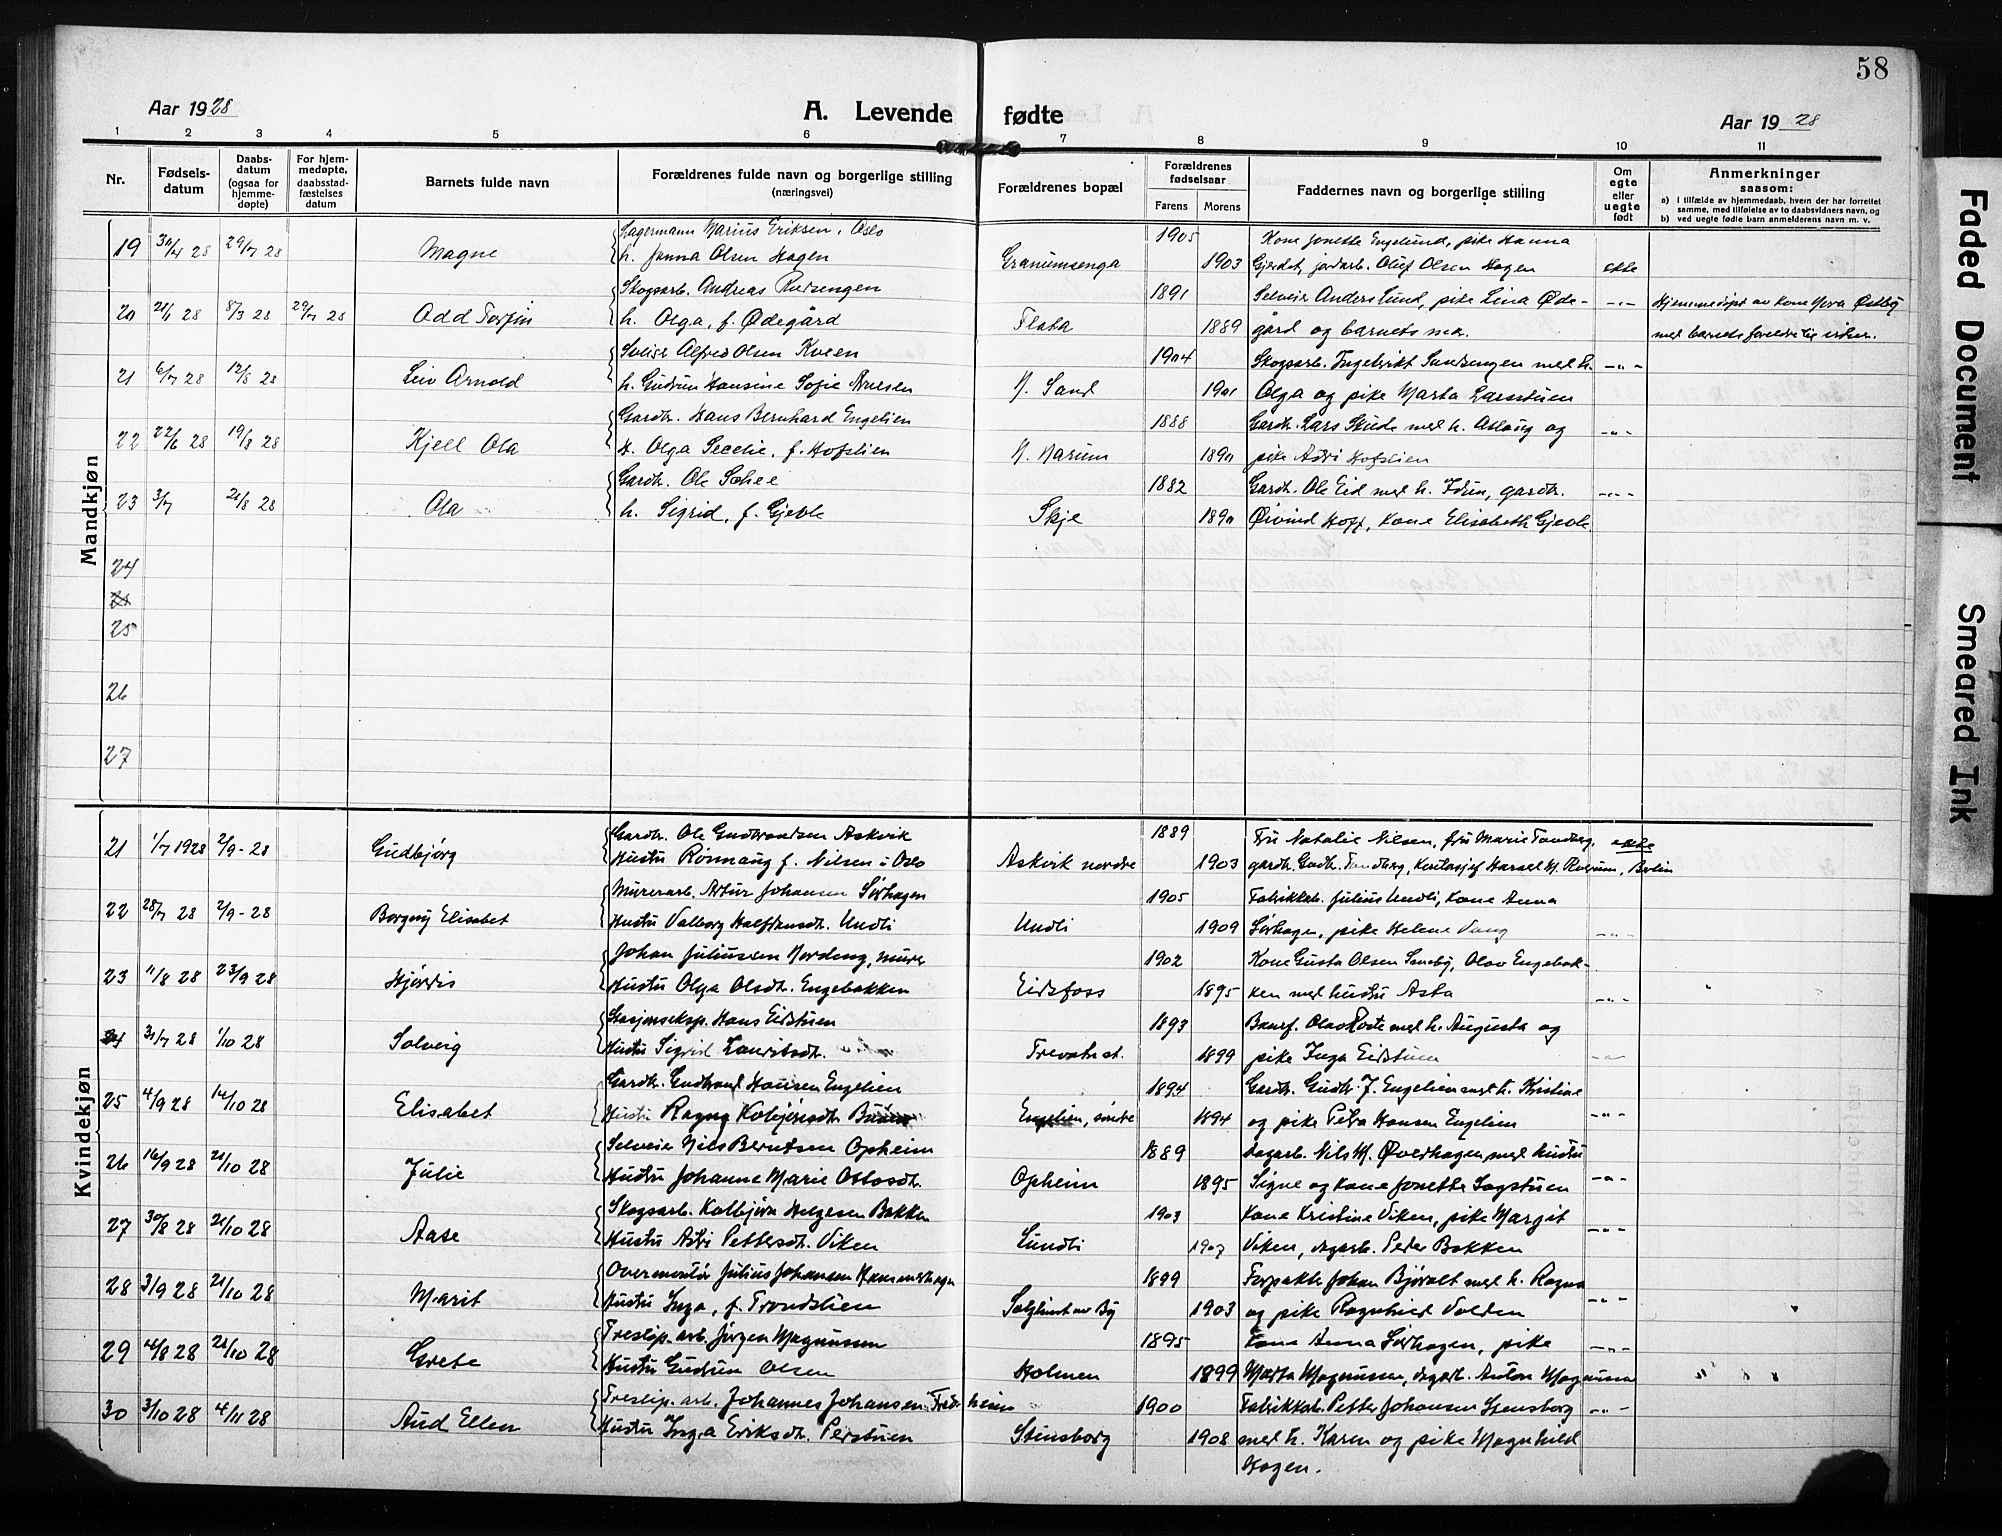 58
Aar 1928
A. Levende fødte
Aar 1928
1 2 3 4 5 6 7 8 9 10 11
Nr.
Fødsels-
datum
Daabs-
datum
(ogsaa for
hjemme-
døpte)
For hjem-
medøpte,
daabsstad-
fæstelses
datum
Barnets fulde navn
Forældrenes fulde navn og borgerlige stilling
(næringsvei)
Forældrenes bopæl
Forældrenes
fødselsaar
Farens Morens
Faddernes navn og borgerlige stilling
Om
egte
eller
uegte
født
Anmerkninger
saasom:
a) I tilfælde av hjemmedaab, hvem der har forrettet
samme, med tilføielse av to daabsvidners navn, og
b) ved uegte fødte barn anmelderens navn m. v.
Mandkjøn
Lagermann Marius Eriksen, Oslo 1905 Kone Jonette Engelund, pike Hanna
19 30/4 28 29/7 28 Magne h. Janna Olsen Hagen Granumsenga 1903 Gjerdet, jordarb. Oluf Olsen Hagen ekte
Skogsarb. Andreas Rudsengen 1891 Selveier Anders Lund, pike Lina Øde-
20 21/1 28 8/3 28 29/7 28 Odd Torfin h. Olga, f. Ødegård Flata 1889 gård og barnets mor. -"- Hjemmedøpt av kone Østby
med barnets foreldre
Alfred Olsen Kveen 1904 Skogsarb. Ingebrikt Sandsengen med h.
21 6/7 28 12/8 28 Leiv Arnold h. Gudrun Hansine Sofie N. Sand 1901 Olga og pike Marta Larsstuen -"-
Gardbr. Hans Bernhard Engelien 1888 Gardbr. Lars Skude med h. Aslaug og
22 22/6 28 19/8 28 Kjell Ola h. Olga Secelie, f. Hofslien N. Narum 1890 pike Astri Hofslien -"-
Gardbr. Ole 1882 Gardbr. Ole Eid med h. Idun, gardbr.
23 3/7 26/8 28 Ola h. Sigrid, f. Gjevle Skje 1890 Øivind Hoff, kone Elisabeth Gjevle -"-
24
25
26
27
Kvindekjøn
Gardbr. Ole Gudbrandsen Askvik 1889 Fru Natalie Nilsen, fru Marie Tandberg,
21 1/7 1928 2/9-28 Gudbjørg Hustru Rønnaug f. Nilsen i Oslo Askvik nordre 1903 gardbr. Gudbr. Tandberg, Berlin ekte
Murerarb. Artur Johansen Sørhagen 1905 Fabrikkarb. Julius Undli, kone Anna
22 28/7 28 2/9-28 Borgny Elisabet Hustru Valborg Halfdansdtr. Undli Undli 1909 Sørhagen, pike Helene Vang -"-
Johan Juliussen Nordeng, murer 1902 Kone Gusta Olsen Sandby, Olav Engebak-
23 11/8 28 23/9 28 Hjørdis Hustru Olga Olsdtr. Engebakken Eidsfoss 1895 ken med hustru Asta -"-
Stasjonseksp. Hans Eidstuen 1893 Banef. Olav Roste med h. Augusta og
24 31/7 28 1/10 28 Solveig Hustru Sigrid Lauritsdtr. Trevatn st. 1899 pike Inga Eidstuen -"-
Gardbr. Gudbrand Hansen Engelien 1894 Gardbr. Gudbr. J. Engelien med h. Kristine
25 4/9 28 14/10 28 Elisabet Hustru Ragna Kolbjørnsdtr. Engelien, søndre 1894 og pike Petra Hansen Engelien -"-
Selveier Nils Berntsen Opheim 1889 dagarb. Nils M. Øverhagen med hustru
26 16/9 28 21/10 28 Julie Hustru Johanne Marie Ottosdtr. Opheim 1895 Signe og kone Jonette Sagstuen -"-
Skogsarb. Kolbjørn Helgesen Bakken 1903 Kone Kristine Viken, pike Margit
27 30/8 28 21/10 28 Aase Hustru Astri Pettersdtr. Viken Lundli 1907 Viken, dagarb. Peder Bakken -"-
Overmontør Julius Johansen 1899 Forpakter Johan Bjørált med h. Ragna
28 3/9 28 21/10 28 Marit Hustru Inga, f. Trondslien av By 1903 og pike Ragnhild Volden -"-
Treslip. arb. Jørgen Magnussen 1895 Kone Anna Sørhagen, pike
29 28/10 28 Grete Hustru Gudrun Olsen Holmen 1899 Marta Magnussen, dagarb. Anton Magnussen -"-
Treslip. arb. Johannes Johansen 1900 Fabrikkarb. Petter Johansen Stensborg
30 3/10 28 4/11 28 Aud Ellen Hustru Inga Eriksdtr. Perstuen Stensborg 1908 med h. Karen og pike Magnhild -"-
Hagen.
Faded Document
Smeared Ink